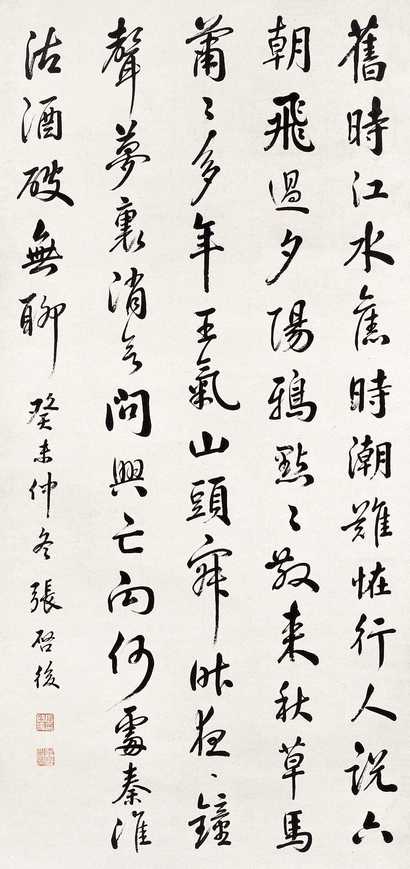 舊時江水舊時潮難恠行人說六
朝飛過夕陽鴉點〻散來秋草馬
蕭〻多年王氣山頭寂昨夜鐘
聲夢裏消欲問興亡向何處秦淮
沽酒破無聊 癸未仲冬張啓後